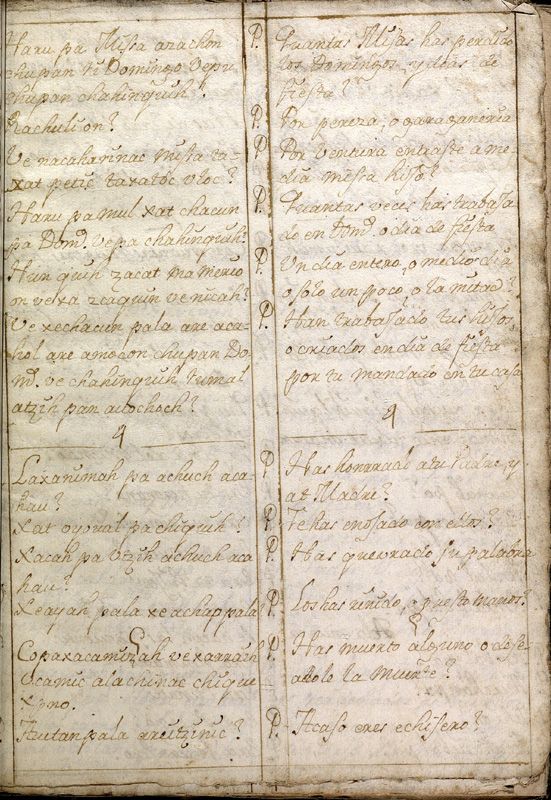 Haru pa Missa azachon
chupan ri Domingo Vepu
chupan chahinquih?
Rachulion?
Ve nacaharinac missa ta-
xat petic taxatoc vloc?
Haru pa mul xat chacun
pa Domō. Vepa chahinquih?
Hun quih zacat pa merio
on vexa zcaquin venicah?
Ve xechacun pala are aca-
hol are amocon chupan Do-
mō. ve chahinquih tumal
atzih pan aochoch?
4
Laxanimah pa achuch aca
hau?
Xat oyoual pa chiquih?
Xacah pa vtzih achuch aca
hau?
Xeayah pala xe achap pala?
5
Copaxacamizah vexarraih
Ucamic alachinac chique
Xono.
Autan pala areitzinic?
P. Quantas Missas has perdido
los Domingos, y dias de
fiesta?
P. Por pereza, o garaganeria
P. Por ventura entraste a me
dia missa hijo?
P. Quantas veces has trabaja
do en Domō. o dia de fiesta
P. Un dia entero, o medio dia
o solo un poco, o la mitad?
P. Han trabajado tus hijos,
o criados en dia de fiesta
por tu mandado en tu casa
4
P. Has honrrado a tu Padre, y
at Madre?
P. Te has enojado con ellos?
P. Has quevrado su palabra
P. Los has reñido, o puesto manos?
5
P. Has muerto alguno o dese
adole la muerte?
P. Acaso eres echisero?